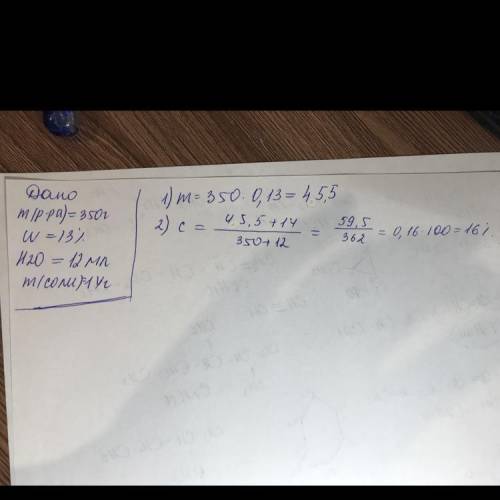 Дано
m(р-ра)=350г
W = 13%
H2O = 12 мл
m(соли)=14г
1) m = 350 · 0,13 = 4.5,5
2) c = 4.5,5+14 / 350+12 = 59,5 / 362 = 0,16·100=16%